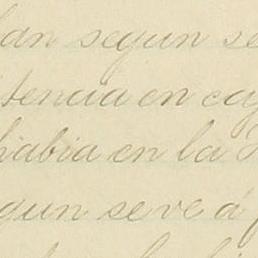 lan segun se
tencia en ca
habia en la
gun se ve á